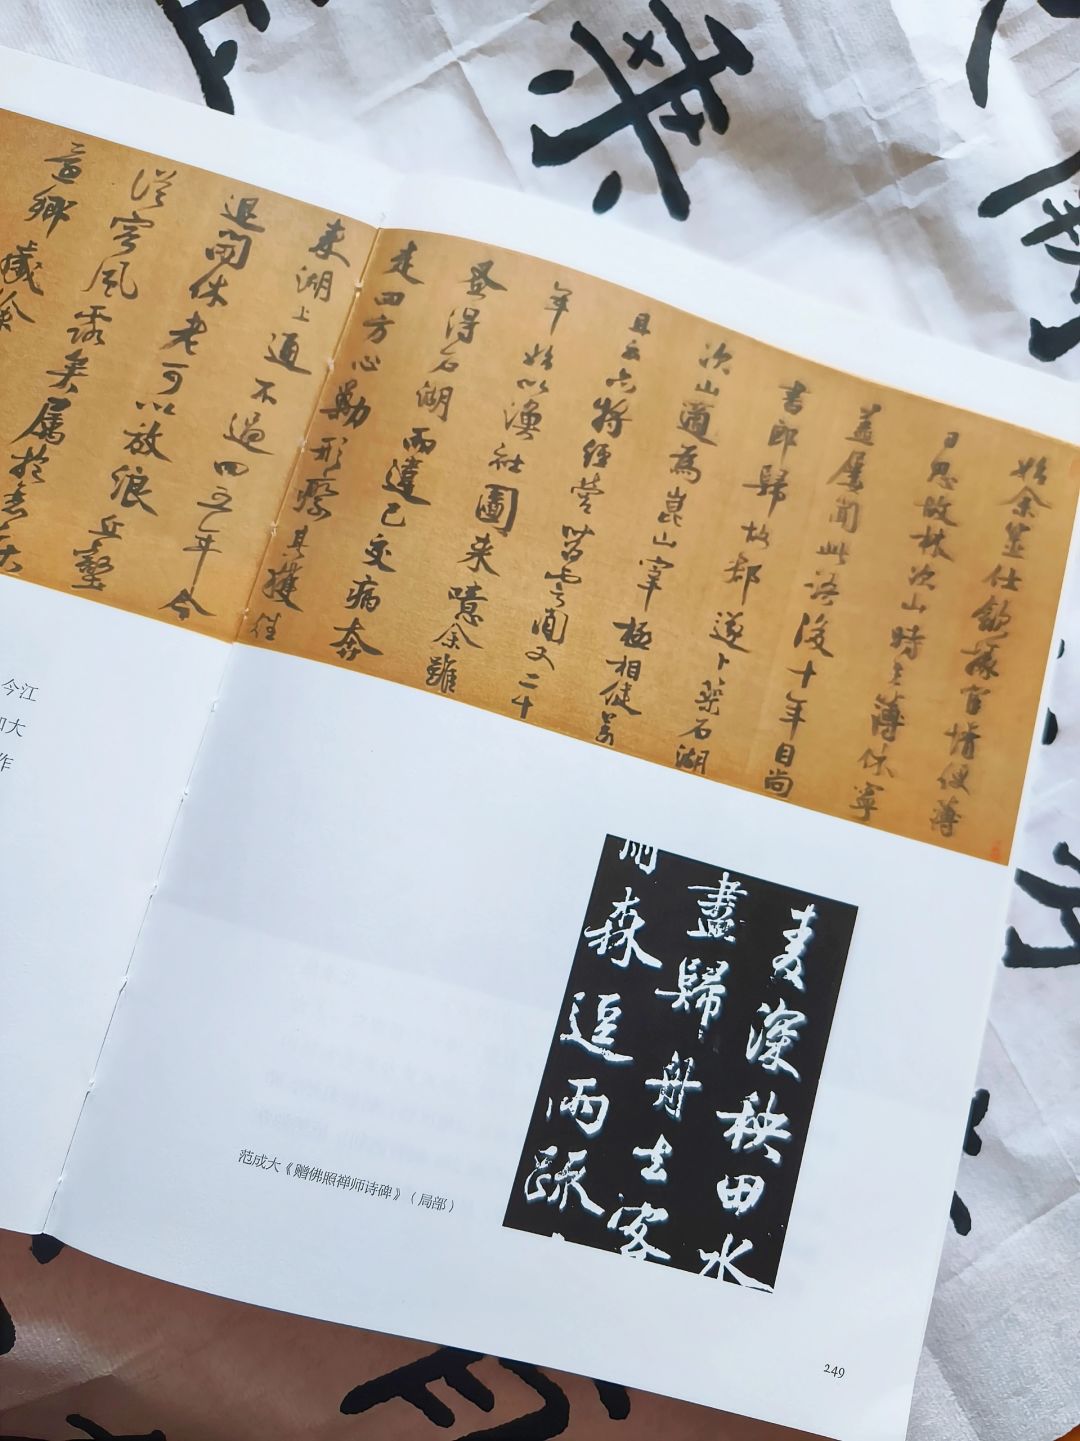 始余筮仕歙掾宦情便薄
日思故林次山時主簿休寧
蓋屢聞此語後十年自尚
書郎歸故郡遂卜築石湖
次山適為崑山宰極相健羡
且云亦將經營苕霅間又二十
年始以漁社圖来噫余雖
蚤得石湖而違己交病奔
走四方心勦形瘵其獲往
来湖上通不過四五年今
退閒休老可以放浪丘壑
從容風露矣屬
鄉歲餘
今江
和大
作
麦深秧田水
盡歸舟去客
森逗雨疏
范成大《赠佛照禅师诗碑》（局部）
249